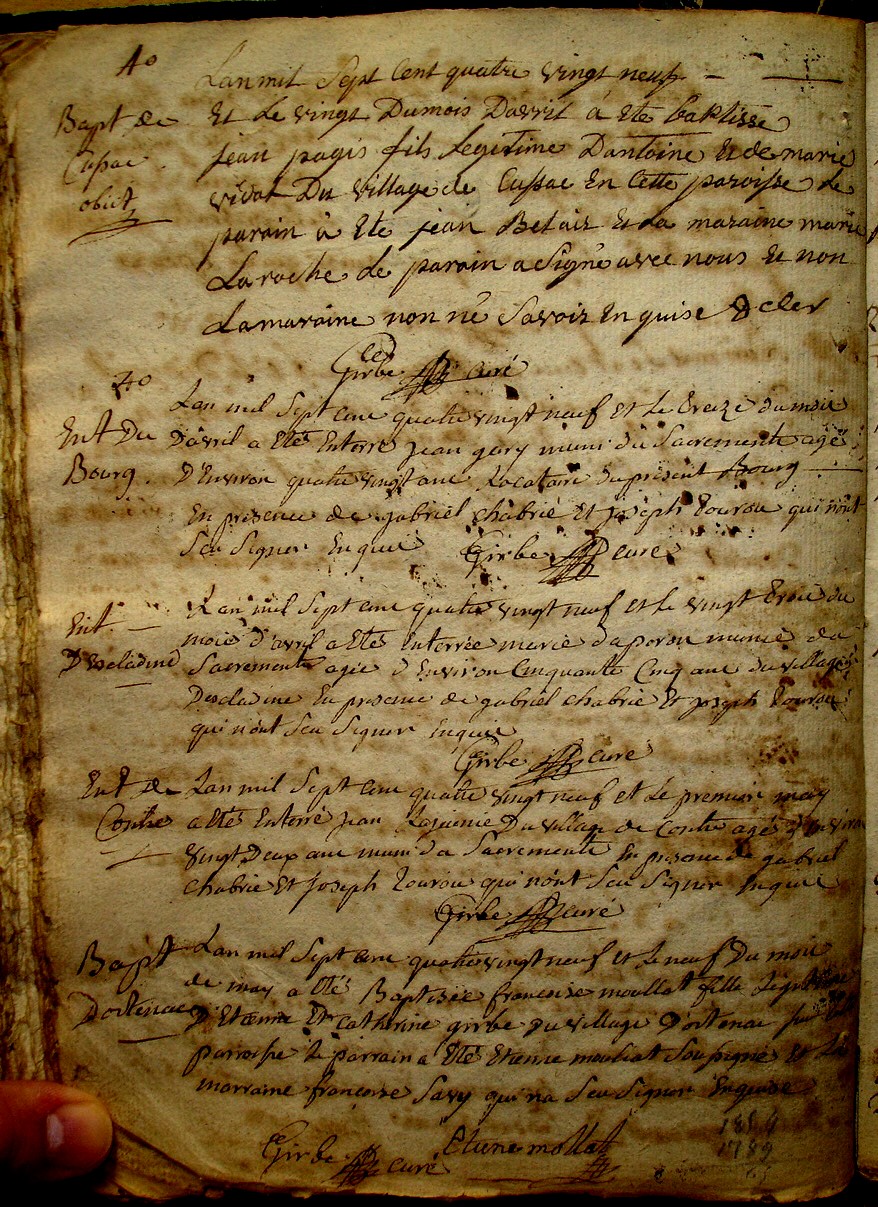 4o
Bapt de
Cussac
obiit
Lan mil Sept Cent quatre vingt neuf
Et Le vingt Dumois Davril à Eté baptissé
jean pagis fils Legitime Dantoine Et de marie
vidal Du village de Cussac En Cette paroisse Le
parain à Eté jean Belair Et La maraine marie
Laroche Le parain a Signé avec nous Et non
Lamaraine non né Savoir En quise de cler
Girbe curé
4o
Ent Du
Bourg
Lan mil Sept Cens quatre vingt neuf et Le treize du mois
D'avril a Eté Enterré jean gary muni du Sacrements agé
D'Environ quatre vingt ans Locataire du présent Bourg
En présence de gabriel Chabrié Et joseph tourou qui n'ont
Seu Signer Enquis Girbe curé
Ent
D'Escladine
Lan mil Sept Cens quatre vingt neuf et Le vingt trois du
mois d'avril a Eté Enterrée marie daporou munie du
Sacrements agée d'Environ Cinquante Cinq ans du village
Descladine En présence de gabriel Chabrié Et joseph tourou
qui n'ont Seu Signer Enquis
Girbe curé
Ent de
Contre
Lan mil Sept Cens quatre vingt neuf et Le premier may
a Eté Enterré jean Lajunie Du village de Contre agé d'Environ
vingt Deux ans muni du Sacrements En présence de gabriel
Chabrié Et joseph tourou qui n'ont Seu Signer Enquis
Girbe curé
Bapt
Dortenac
Lan mil Sept Cens quatre vingt neuf et Le neuf Du mois
de may a Eté Baptisée francoise moullat fille Légitime
D'Etienne Et Catherine girbe Du village D'ortenac
parroisse Le parrain a Eté Etienne mouliat Soussigné Et La
marraine francoise Savy qui na Seu Signer Enquise
Girbe curé Etiene mollat
1789